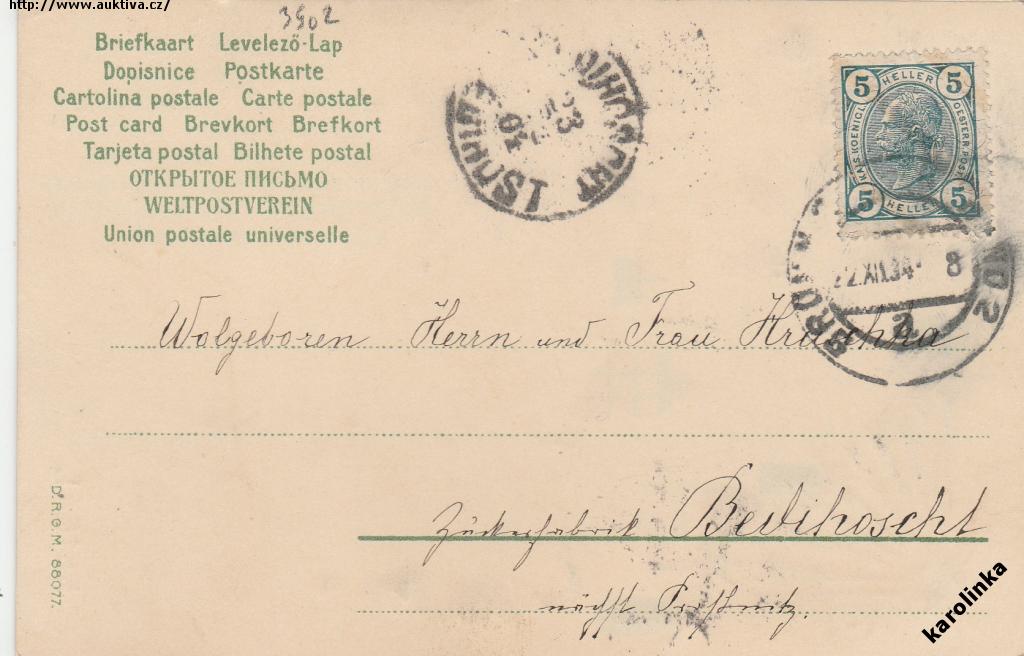 http://www.auktiva.cz/
3902
Briefkaart Levelező-Lap
Dopisnice Postkarte
Cartolina postale Carte postale
Post card Brevkort Brefkort
Tarjeta postal Bilhete postal
ОТКРЫТОЕ ПИСЬМО
WELTPOSTVEREIN
Union postale universelle
5 HELLER 5
KAIS. KOENIGL. OESTERR. POST
5 HELLER 5
XII 04 8
2
Wolgeboren Herrn und Frau Hruschka
Zuckerfabrik Bedihoscht
nächst Prossnitz.
D.R.G.M. 88077.
karolinka